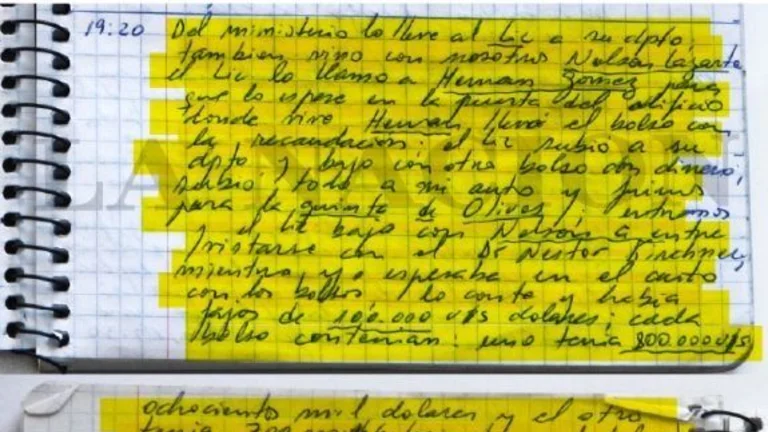 19:20 Del ministerio lo lleve al Lic a su dpto,
tambien vino con nosotros Nelson Lazarte
el Lic lo llamo a Hernan Gomez para
que lo espere en la puerta del edificio
donde vive Hernan, llevó el bolso con
la recaudacion; el Lic subio a su
dpto y bajo con otro bolso con dinero;
subio todo a mi auto y fuimos
para la quinta de Olivos; entramos
y el Lic bajo con Nelson a entre
vistarse con el Dr Nestor Kirchner,
mientras yo esperaba en el auto
con los bolsos, lo conte y habia
fajos de 100.000 U$S dolares; cada
bolso contenian: uno tenia 800.000 U$S
ochocientos mil dolares y el otro
tenia
LA NACION